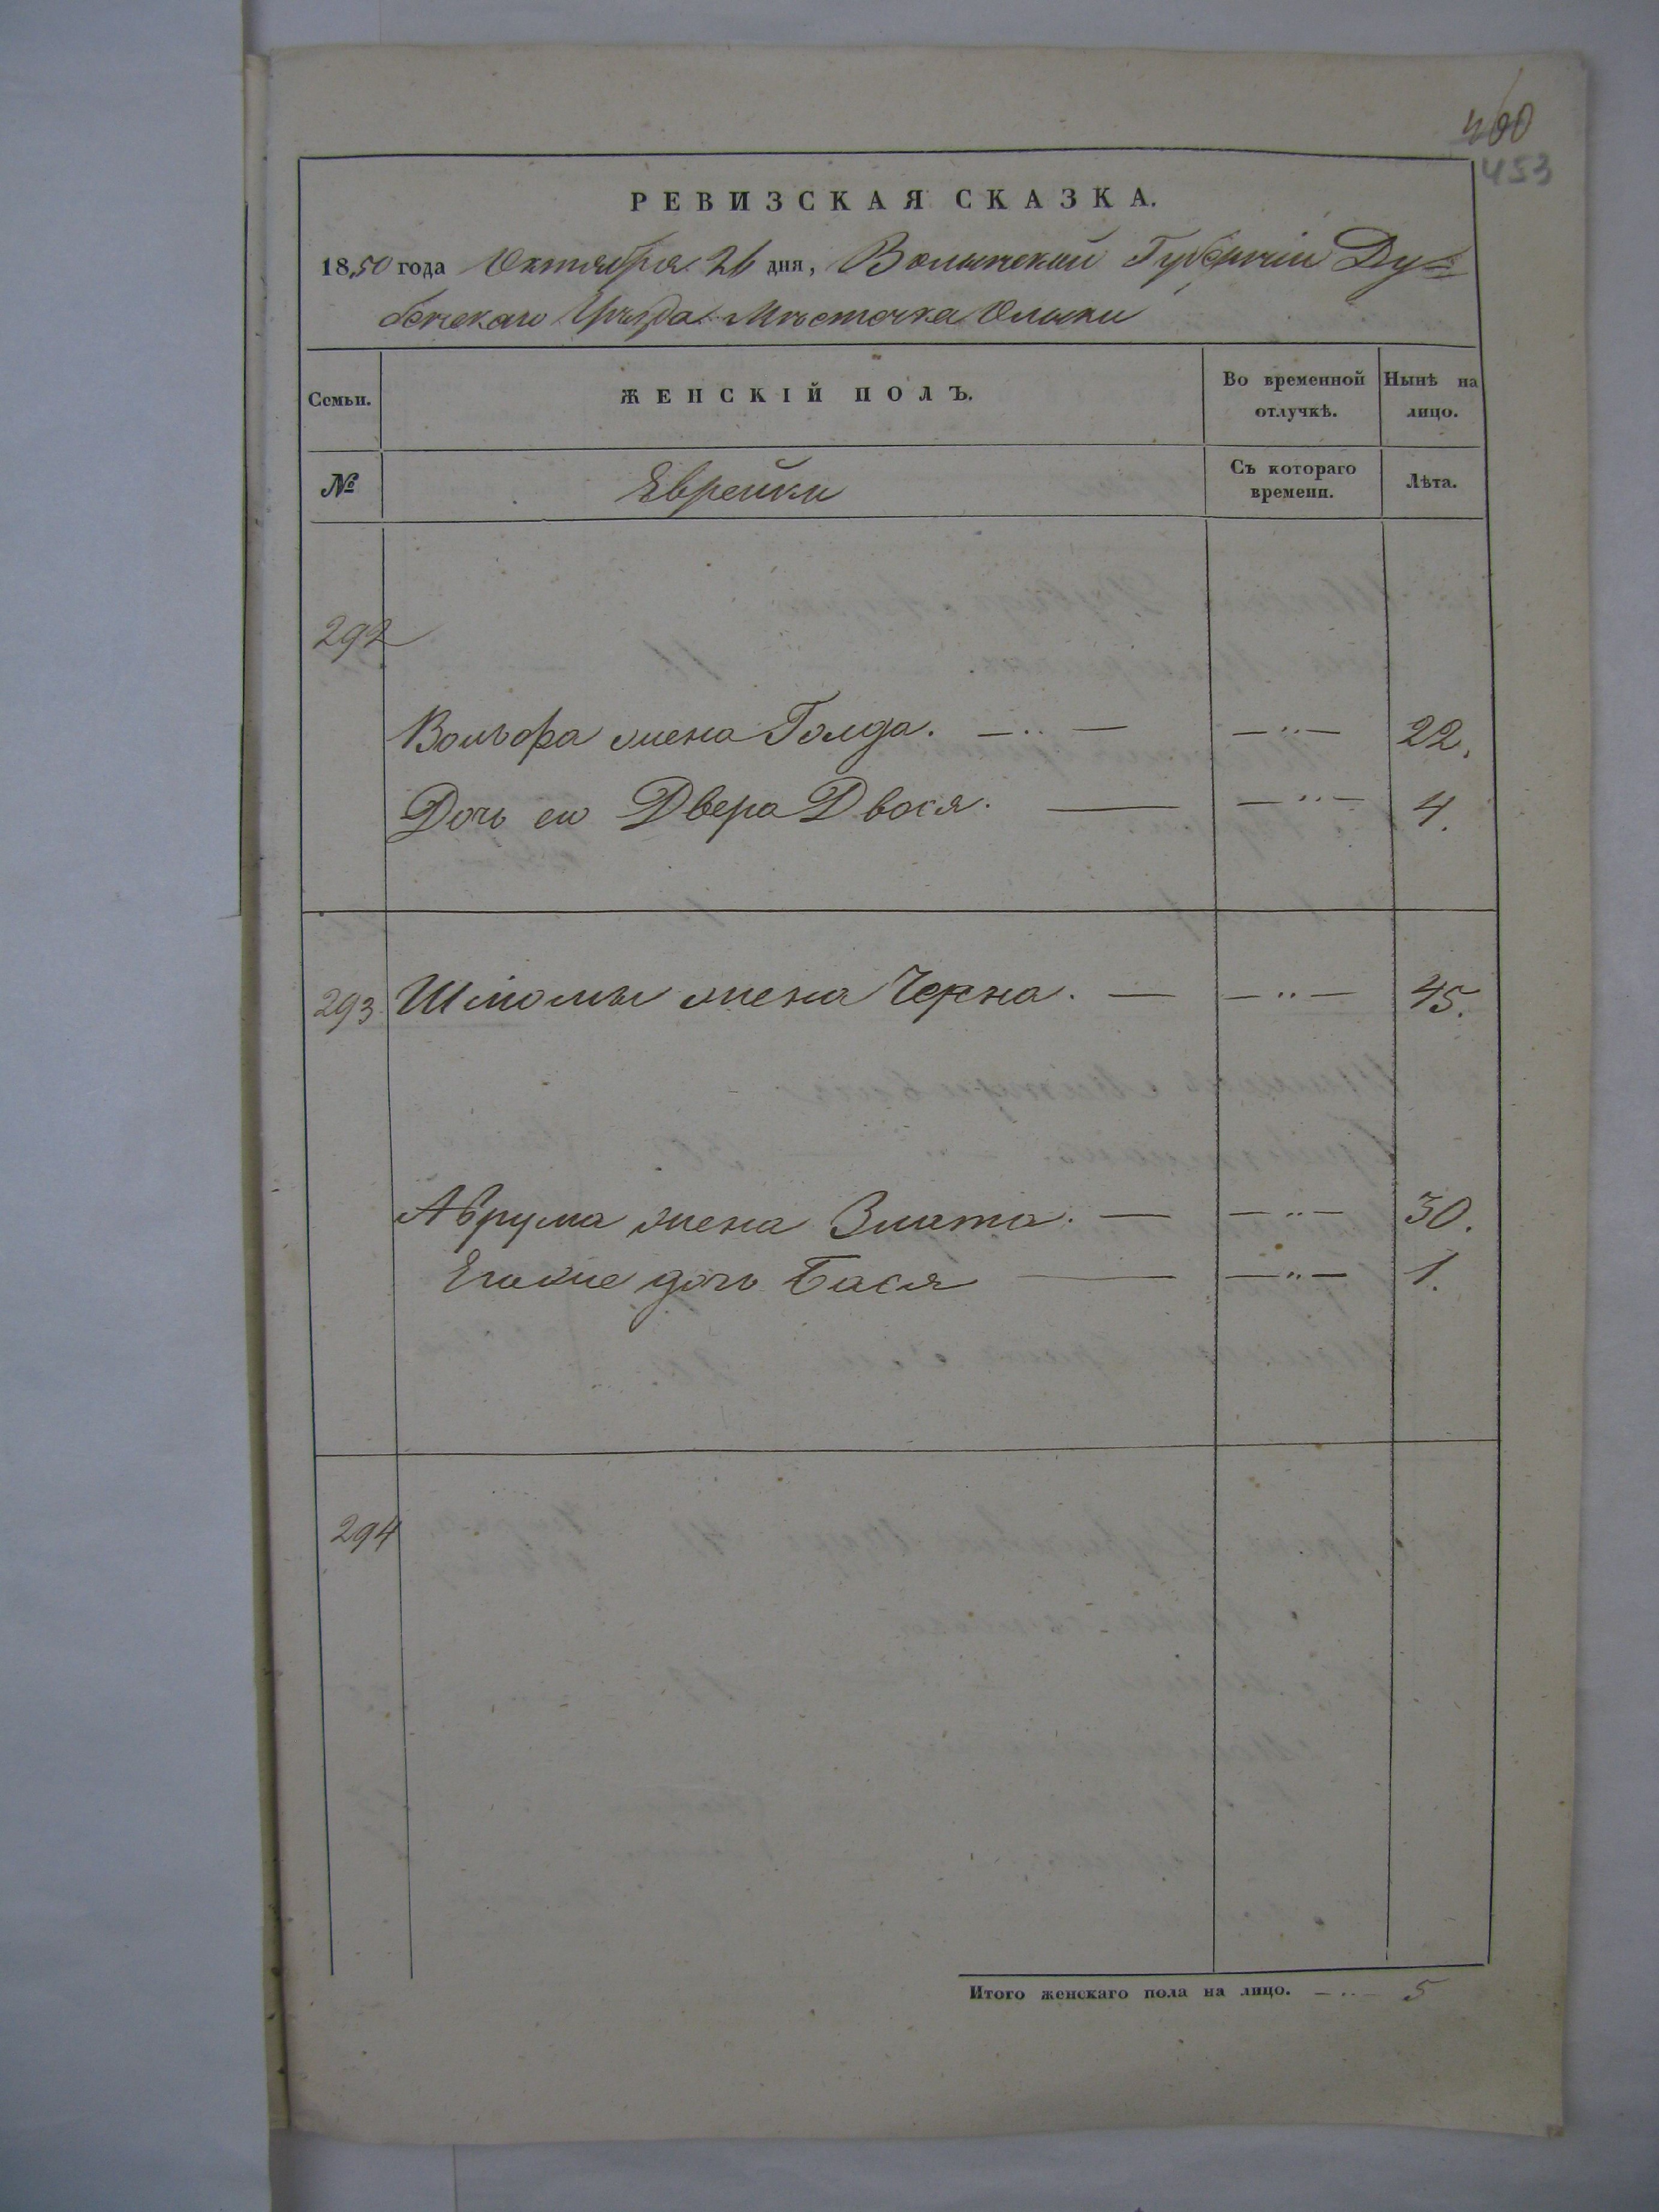 400
453
РЕВИЗСКАЯ СКАЗКА.
1850 года Октября 26 дня, Волынской Губерніи Ду=
бенскаго Уѣзда Мѣстечка Олыки
Семьи. ЖЕНСКІЙ ПОЛЪ. Во временной отлучкѣ. Нынѣ на лицо.
№ Еврейки Съ котораго времени. Лѣта.
292
Вольфа жена Голда. — .. — — .. — 22.
Дочь ею Двера Двося. — — .. — 4.
293. Шломы жена Черна. — — .. — 45.
Аврума жена Злата. — — .. — 30.
Егоже дочь Бася — — .. — 1.
294
Итого женскаго пола на лицо. — .. — 5